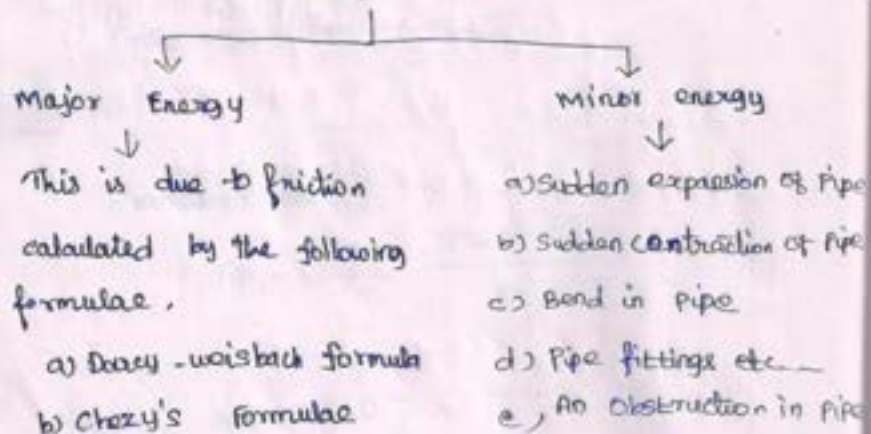 Major Energy
This is due to friction
calculated by the following
formulae.
a) Darcy-weisbach formula
b) Chezy's Formulae
Minor energy
a) Sudden expansion of Pipe
b) Sudden contraction of Pipe
c) Bend in Pipe
d) Pipe fittings etc...
e, An Obstruction in Pipe